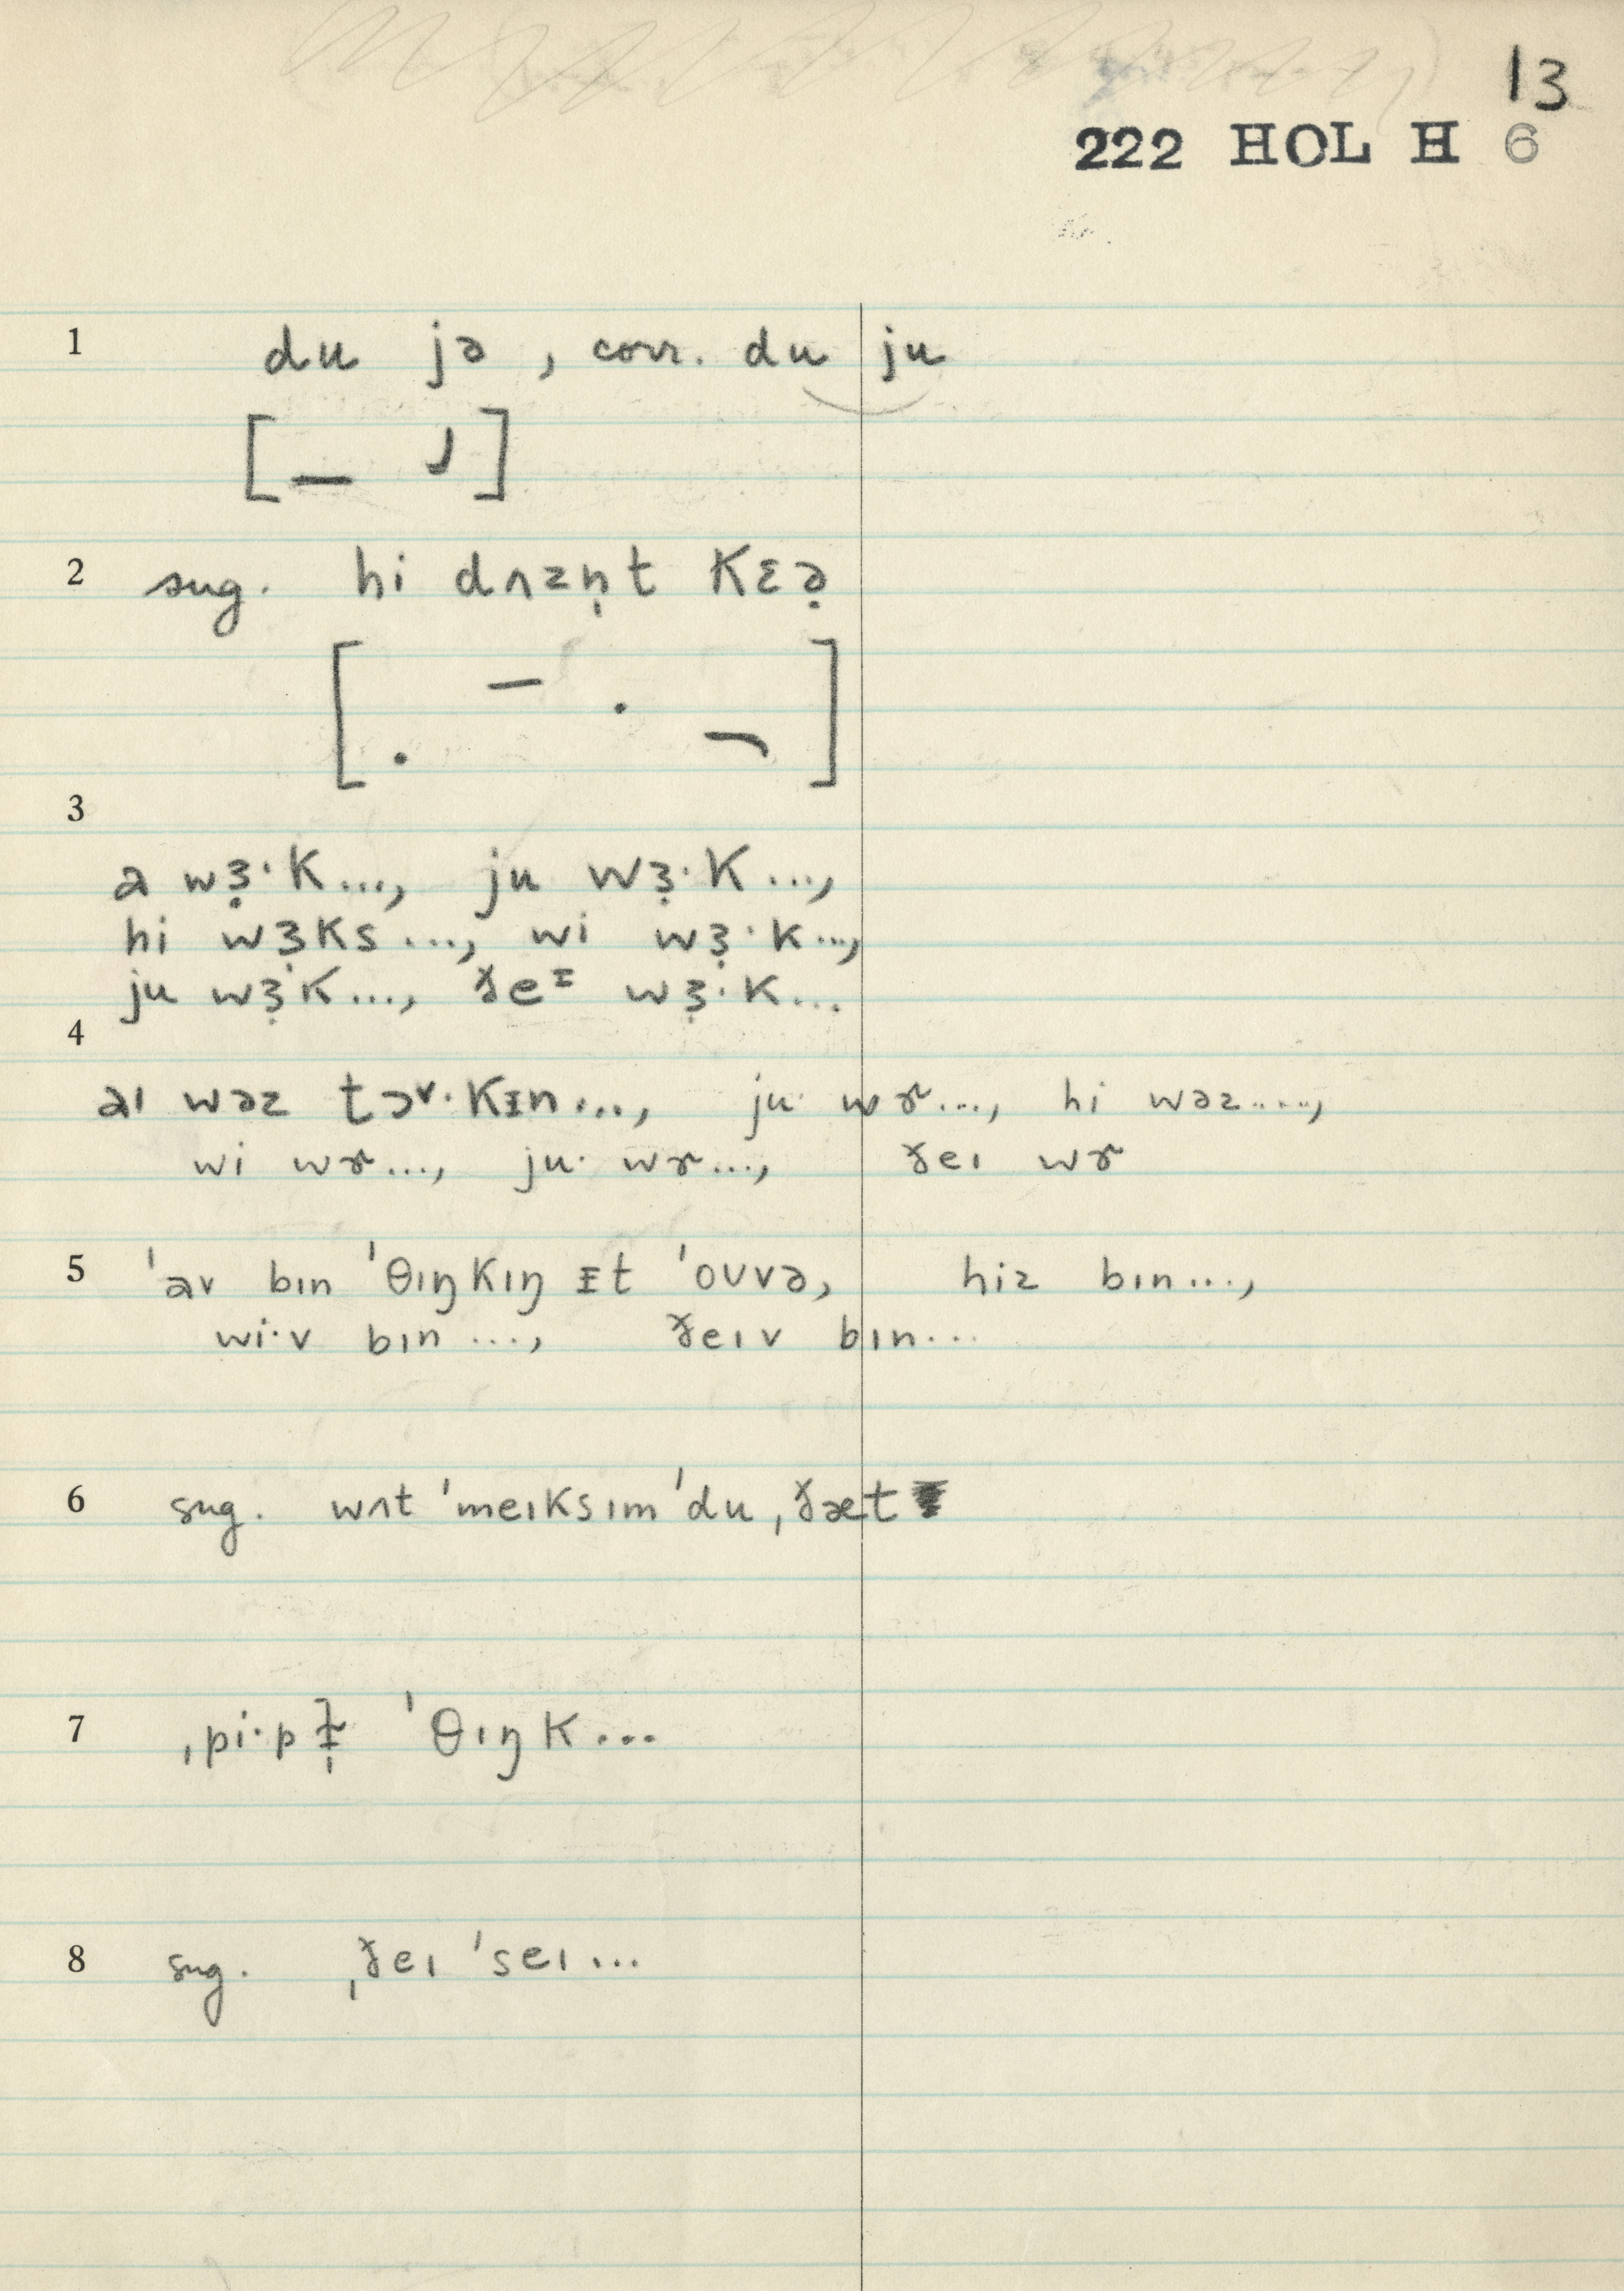 13
222 HOL H 6
1 du jə, corr. du ju
[– ˩]
2 sug. hi dʌzn̩t Kɛə̣
[. – . ¬]
3
a wɜ̣·K..., ju wɜ̣·K...,
hi wɜKs..., wi wɜ̣·K...,
ju wɜ̣·K..., ðeᵻ wɜ̣·K...
4
aɪ wəz tɔ˅·Kᵻn..., ju· wɚ..., hi wəz....,
wi wɚ..., ju· wɚ..., ðeɪ wɚ
5 ˈav bɪn ˈθɪŋKɪŋ ᵻt ˈoʊvə, hiz bɪn...,
wi·v bɪn..., ðeɪv bɪn...
6 sug. wʌt ˈmeɪKsɪm ˈdu ˌðæt
7 ˌpi·pɫ̩ ˈθɪŋK...
8 sug. ˌðeɪ ˈseɪ...